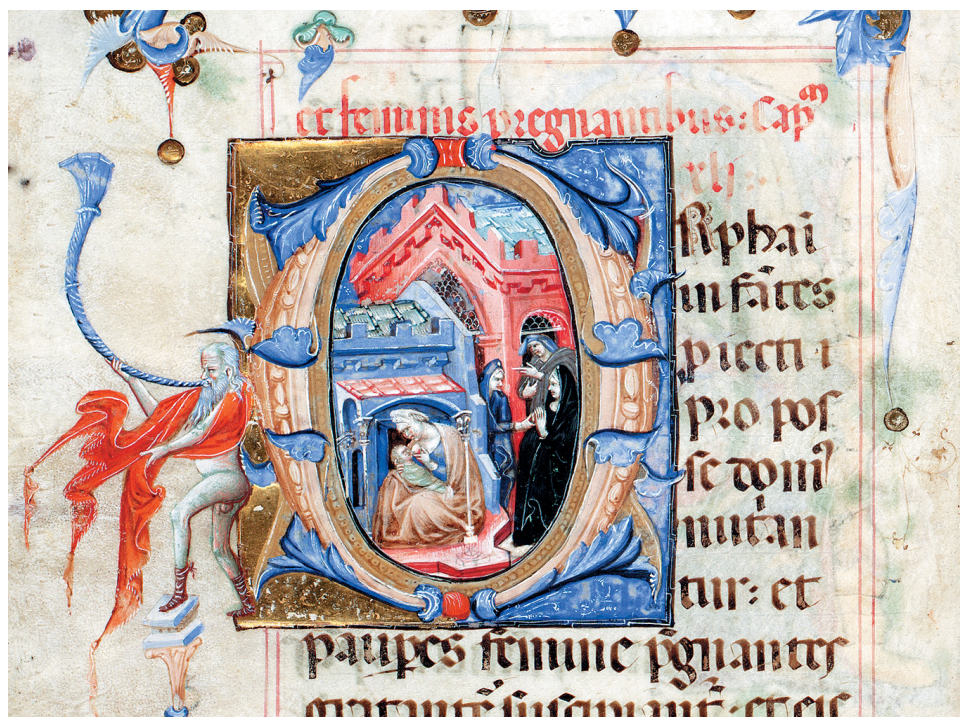 et feminis pregnantibus: Cap̄m
xlj:
ORphāi
infātes
piecti ı
pro pos
se domꝰ
nut̾an
tur: et
paupes fēmine pgnantes